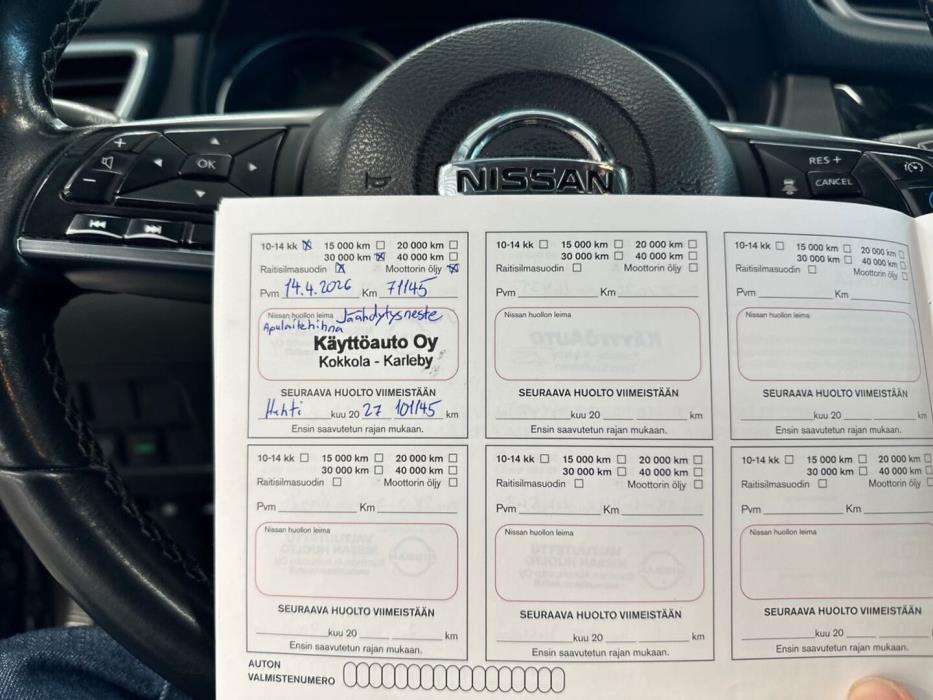 OK
RES +
CANCEL
NISSAN
10-14 kk ☒ 15 000 km ☐ 20 000 km ☐
30 000 km ☒ 40 000 km ☐
Raitisilmasuodin ☒ Moottorin öljy ☒
Pvm 14.4.2026 Km 71145
Nissan huollon leima Jäähdytysneste
Apulaitehihna
Käyttöauto Oy
Kokkola - Karleby
SEURAAVA HUOLTO VIIMEISTÄÄN
Huhti kuu 20 27 101145 km
Ensin saavutetun rajan mukaan.
10-14 kk ☐ 15 000 km ☐ 20 000 km ☐
30 000 km ☐ 40 000 km ☐
Raitisilmasuodin ☐ Moottorin öljy ☐
Pvm Km
Nissan huollon leima
SEURAAVA HUOLTO VIIMEISTÄÄN
kuu 20 km
Ensin saavutetun rajan mukaan.
10-14 kk ☐ 15 000 km ☐ 20 000 km ☐
30 000 km ☐ 40 000 km ☐
Raitisilmasuodin ☐ Moottorin öljy ☐
Pvm Km
Nissan huollon leima
SEURAAVA HUOLTO VIIMEISTÄÄN
kuu 20 km
Ensin saavutetun rajan mukaan.
10-14 kk ☐ 15 000 km ☐ 20 000 km ☐
30 000 km ☐ 40 000 km ☐
Raitisilmasuodin ☐ Moottorin öljy ☐
Pvm Km
Nissan huollon leima
SEURAAVA HUOLTO VIIMEISTÄÄN
kuu 20 km
Ensin saavutetun rajan mukaan.
10-14 kk ☐ 15 000 km ☐ 20 000 km ☐
30 000 km ☐ 40 000 km ☐
Raitisilmasuodin ☐ Moottorin öljy ☐
Pvm Km
Nissan huollon leima
SEURAAVA HUOLTO VIIMEISTÄÄN
kuu 20 km
Ensin saavutetun rajan mukaan.
10-14 kk ☐ 15 000 km ☐ 20 000 km ☐
30 000 km ☐ 40 000 km ☐
Raitisilmasuodin ☐ Moottorin öljy ☐
Pvm Km
Nissan huollon leima
SEURAAVA HUOLTO VIIMEISTÄÄN
kuu 20 km
Ensin saavutetun rajan mukaan.
AUTON
VALMISTENUMERO